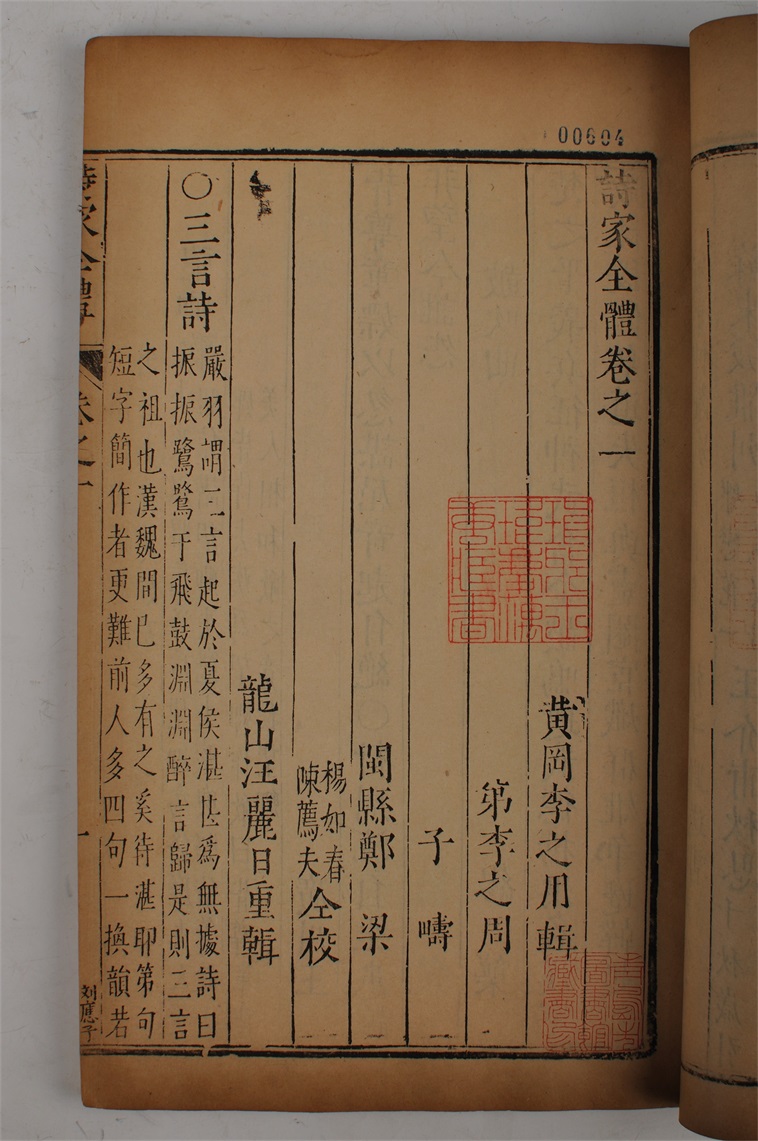 00604
詩家全體卷之一
黄岡李之用輯
弟李之周
子疇
閩縣鄭梁
楊如春
陳薦夫仝校
龍山汪麗日重輯
○三言詩
嚴羽謂三言起於夏侯湛甚爲無據詩曰
振振鷺鷺于飛鼓淵淵醉言歸是則三言
之祖也漢魏間已多有之奚待湛耶第句
短字簡作者更難前人多四句一換韻若
詩家全體
卷之一
一
刘應子